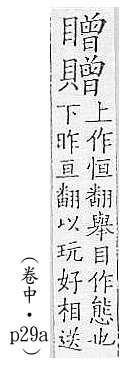 䁬贈
上作恒翻舉目作態也
下昨亘翻以玩好相送
（卷中・p29a）